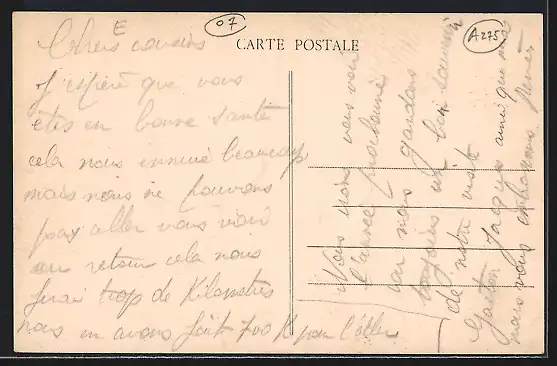 E
07
A275
CARTE POSTALE
Chers cousins
J'espère que vous
êtes en bonne santé
cela nous ennuie beaucoup
mais nous ne pouvons
pas aller vous voir
au retour cela nous
ferai trop de Kilometres
nous en avons fait 700 K pour l'aller
Nous irons vous voir
l'année prochaine
car nous gardons
toujours un bon souvenir
de notre visite
Gaston Jacques ainsi que moi
nous vous embrassons